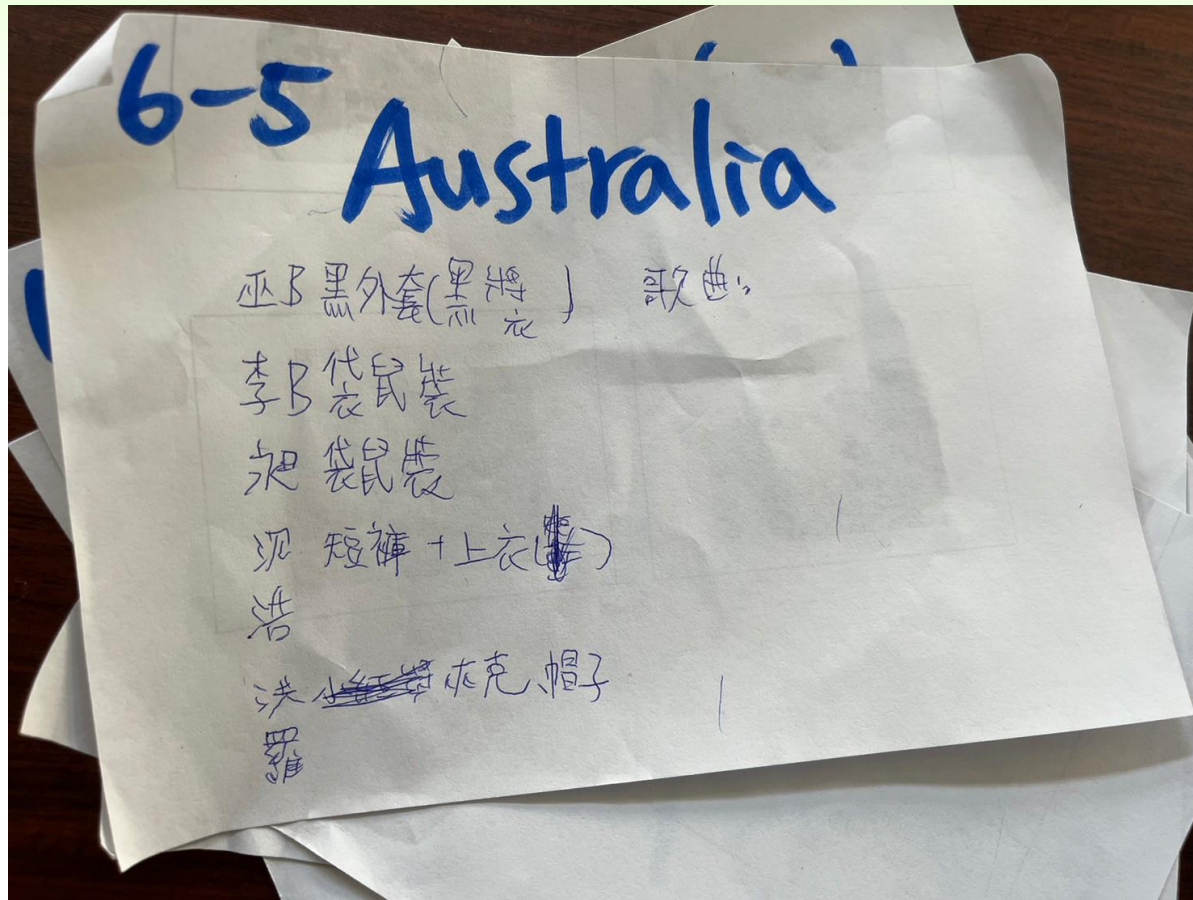 6-5
Australia
巫B 黑外套(黑將衣) 歌曲:
李B 袋鼠裝
昶 袋鼠裝
沉 短褲+上衣( )
浩
洪 夾克、帽子
羅